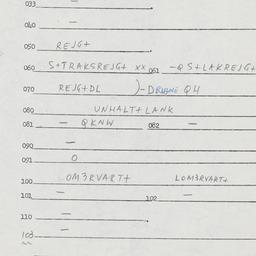 033 —
040 —
050 REJG+
060 S+TRAKSREJG+ XX 061 -QS+LAKREJG+
070 REJG+DL )-DRUBNE QH
080 UNHALT+LANK
081 — QKNW 082 —
090 —
091 O
100 OM3RVART+ LOM3RVART+
101 — 102 —
110 —
103 —